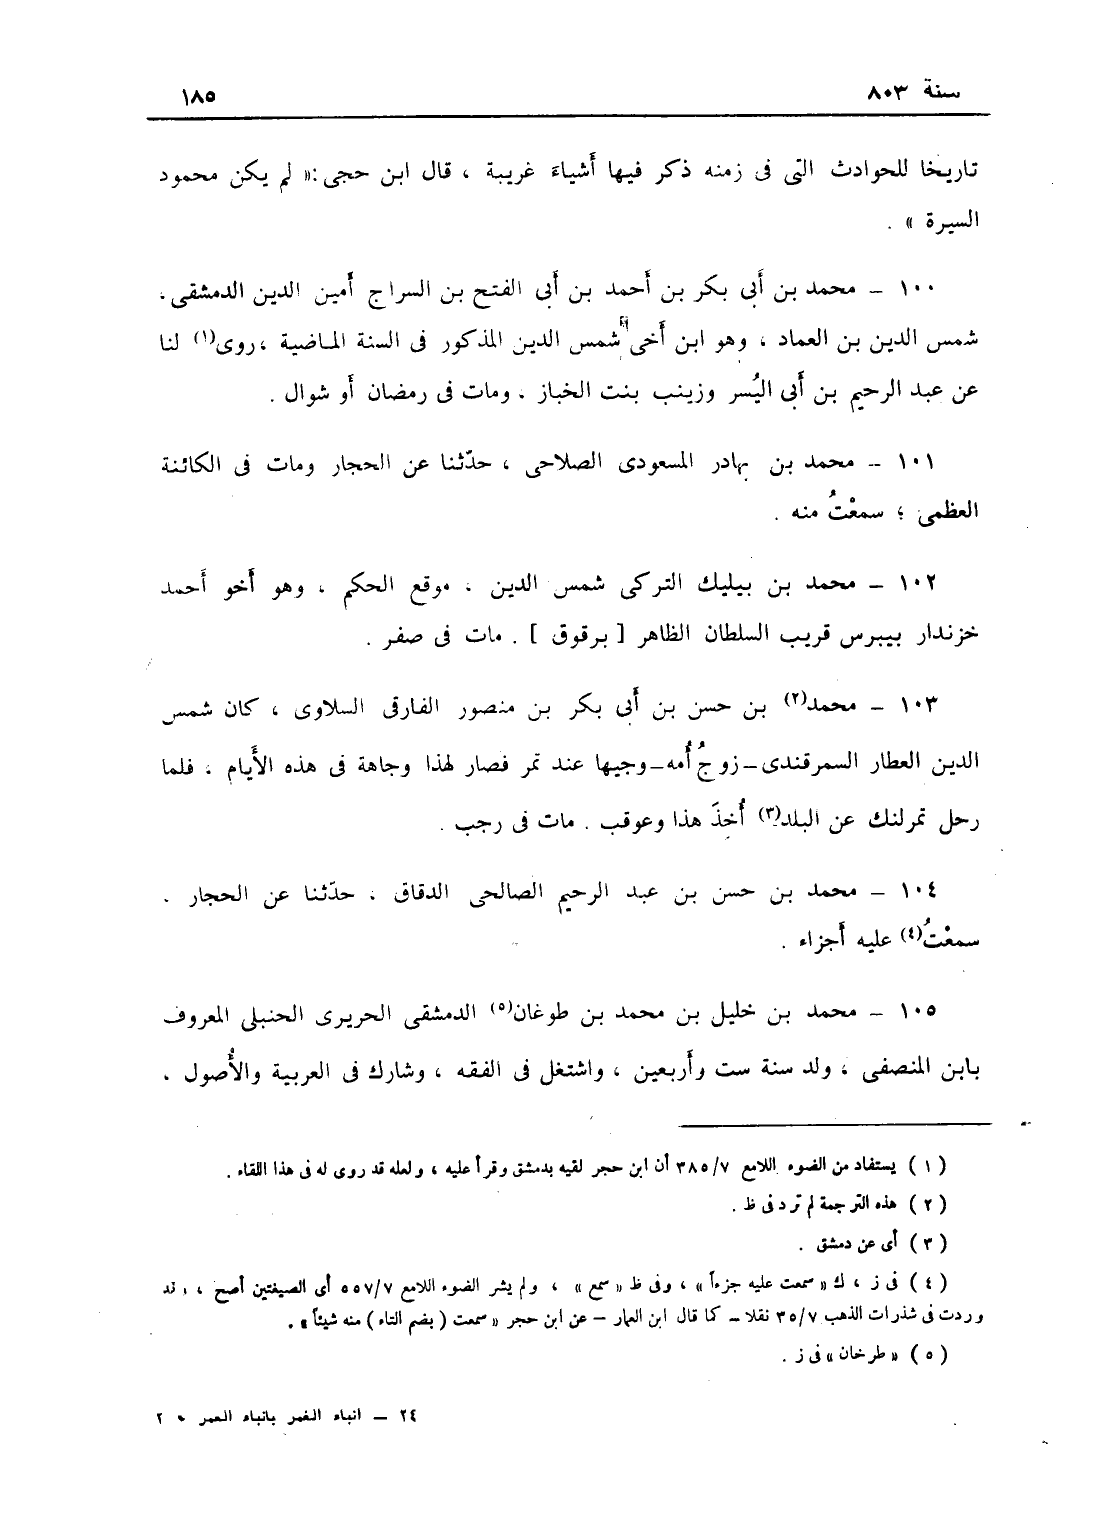 سنة ٨٠٣
١٨٥
تاريخا للحوادث التى فى زمنه ذكر فيها أَشياءَ غريبة ، قال ابن حجى :« لم يكن محمود
السيرة » .
١٠٠ ـ محمد بن أَبى بكر بن أَحمد بن أَبى الفتح بن السراج أَمين الدين الدمشقى ،
شمس الدين بن العماد ، وهو ابن أَخى شمس الدين المذكور فى السنة الماضية ، روى(١) لنا
عن عبد الرحيم بن أَبى اليُسر وزينب بنت الخباز . ومات فى رمضان أَو شوال .
١٠١ ـ محمد بن بهادر المسعودى الصلاحى ، حدّثنا عن الحجار ومات فى الكائنة
العظمى ؛ سمعْتُ منه .
١٠٢ ـ محمد بن بيليك التركى شمس الدين . موقع الحكم ، وهو أَخو أَحمد
خزندار بيبرس قريب السلطان الظاهر [ برقوق ] . مات فى صفر .
١٠٣ ـ محمد(٢) بن حسن بن أَبى بكر بن منصور الفارقى السلاوى ، كان شمس
الدين العطار السمرقندى ـ زوجُ أُمه ـ وجيها عند تمر فصار لهذا وجاهة فى هذه الأَيام ، فلما
رحل تمرلنك عن البلد(٣) أُخِذَ هذا وعوقب . مات فى رجب .
١٠٤ ـ محمد بن حسن بن عبد الرحيم الصالحى الدقاق . حدّثنا عن الحجار .
سمعْتُ(٤) عليه أَجزاء .
١٠٥ ـ محمد بن خليل بن محمد بن طوغان(٥) الدمشقى الحريرى الحنبلى المعروف
بابن المنصفى ، ولد سنة ست وأَربعين ، واشتغل فى الفقه ، وشارك فى العربية والأُصول .
( ١ ) يستفاد من الضوء اللامع ٣٨٥/٧ أن ابن حجر لقيه بدمشق وقرأ عليه ، ولعله قد روى له فى هذا اللقاء .
( ٢ ) هذه الترجمة لم ترد فى ظ .
( ٣ ) أى عن دمشق .
( ٤ ) فى ز ، ك « سمعت عليه جزءاً » ، وفى ظ « سمع » ، ولم يشر الضوء اللامع ٥٥٧/٧ أى الصيغتين أصح ، وقد
وردت فى شذرات الذهب ٣٥/٧ نقلا ـ كما قال ابن العمار ـ عن ابن حجر « سمعت ( بضم التاء ) منه شيئاً » .
( ٥ ) « طرخان » فى ز .
٢٤ ـ انباء الغمر بانباء العمر ج ٢